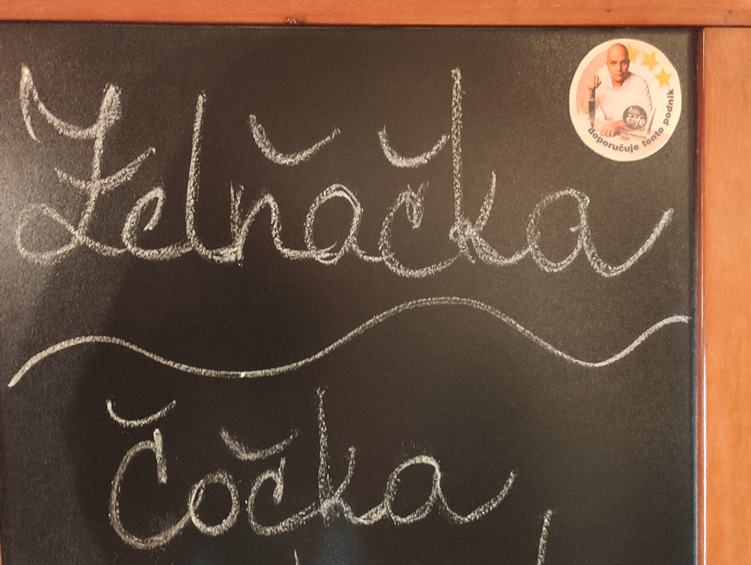 Zelňačka
Čočka
doporučuje tento podnik